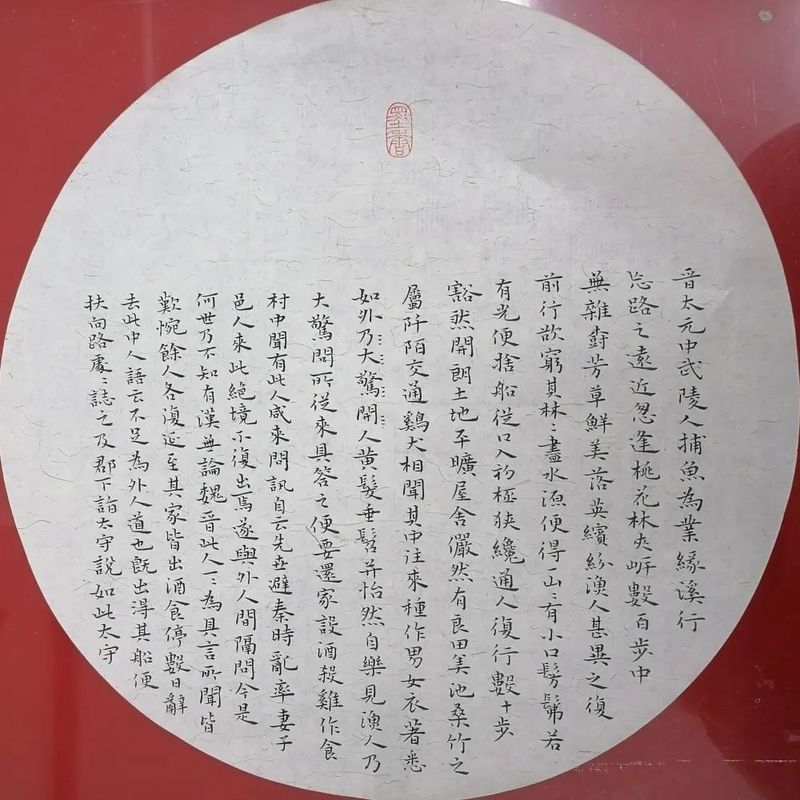 晉太元中武陵人捕魚為業緣溪行
忘路之遠近忽逢桃花林夾岸數百步中
無雜樹芳草鮮美落英繽紛漁人甚異之復
前行欲窮其林〻盡水源便得一山〻有小口髣髴若
有光便捨船從口入初極狹纔通人復行數十步
豁然開朗土地平曠屋舍儼然有良田美池桑竹之
屬阡陌交通鷄犬相聞其中往來種作男女衣著悉
如外乃大驚開人黃髮垂髫并怡然自樂見漁人乃
大驚問所從來具答之便要還家設酒殺雞作食
村中聞有此人咸來問訊自云先世避秦時亂率妻子
邑人來此絕境不復出焉遂與外人間隔問今是
何世乃不知有漢無論魏晉此人一〻為具言所聞皆
歎惋餘人各復延至其家皆出酒食停數日辭
去此中人語云不足為外人道也既出得其船便
扶向路處〻誌之及郡下詣太守說如此太守